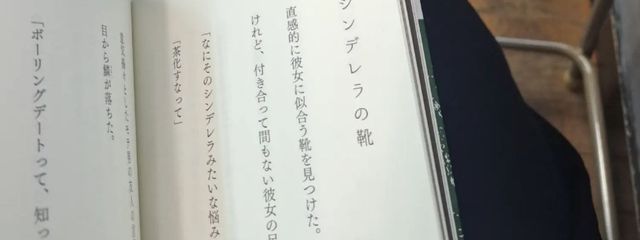 シンデレラの靴
直感的に彼女に似合う靴を見つけた。
けれど、付き合って間もない彼女の
「なにそのシンデレラみたいな悩み
「茶化すなって」
目から鱗が落ちた。
「ボーリングデートって、知っ